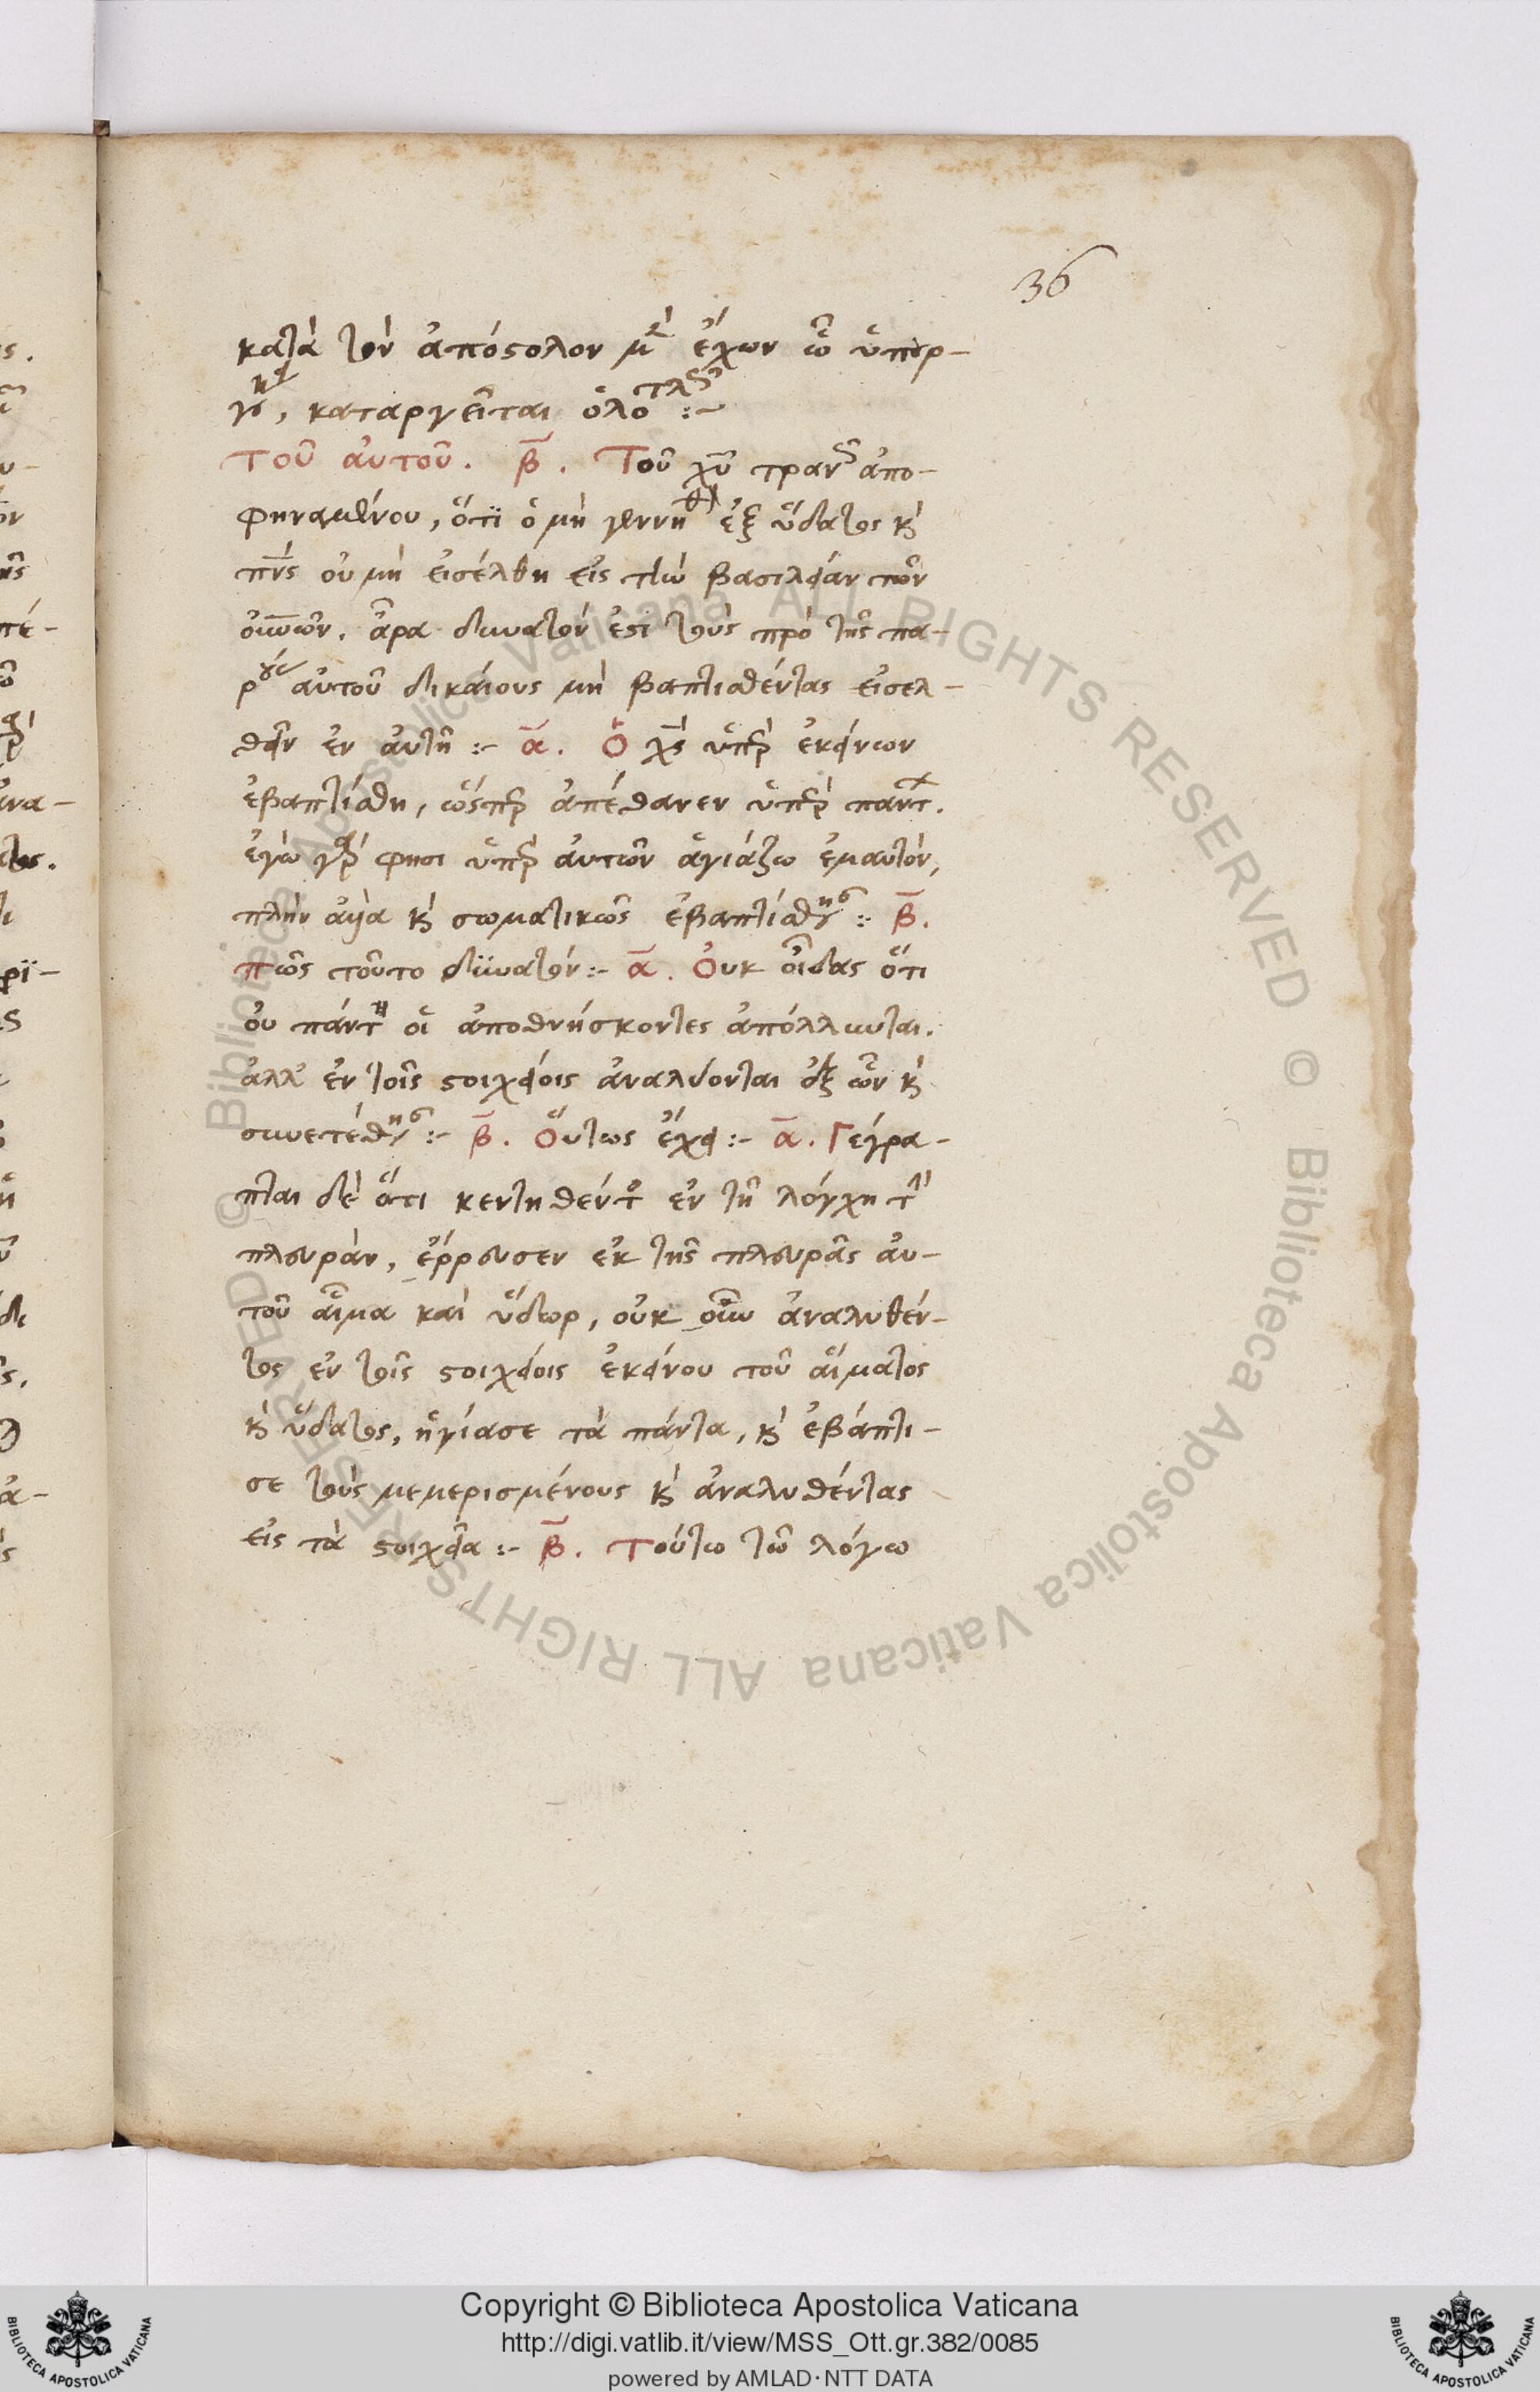 36
κατὰ τὸν ἀπόστολον μὴ ἔχων ᾧ ὑπερ-
καταργεῖται ὁλοτελῶς :~
Τοῦ αὐτοῦ. β̅. Τοῦ χυ̅ τρανῶς ἀπο-
φηναμένου, ὅτι ὁ μὴ γεννηθῆ ἐξ ὕδατος κὶ
πνς̅ οὐ μὴ εἰσέλθη εἰς τὴν βασιλείαν τῶν
οὐνῶν. ἆρα δυνατόν ἐστι τοὺς πρὸ τῆς πα-
ρουσίας αὐτοῦ δικαίους μὴ βαπτισθέντας εἰσελ-
θεῖν ἐν αὐτῆ :- α̅. Ὁ χς̅ ὑπὲρ ἐκείνων
ἐβαπτίσθη, ὥσπερ ἀπέθανεν ὑπὲρ πάντων.
ἐγὼ γάρ φησι ὑπὲρ αὐτῶν ἁγιάζω ἐμαυτόν,
πλὴν ἀλλὰ κὶ σωματικῶς ἐβαπτίσθησαν :- β̅.
πῶς τοῦτο δϋνατόν :- α̅. Οὐκ οἶδας ὅτι
οὐ πάντη οἱ ἀποθνήσκοντες ἀπόλλυνται.
ἀλλ' ἐν τοῖς στοιχείοις ἀναλύονται ἐξ ὧν κὶ
συνετέθησαν :- β̅. Οὕτως ἔχει :- α̅. Γέγρα-
πται δὲ ὅτι κεντηθέντος ἐν τῆ λόγχη τὴν
πλευράν, ἔρρευσεν ἐκ τῆς πλευρᾶς αὐ-
τοῦ αἷμα καὶ ὕδωρ, οὐκ οὖν ἀναλυθέν-
τος ἐν τοῖς στοιχείοις ἐκείνου τοῦ αἵματος
κὶ ὕδατος, ἡγίασε τὰ πάντα, κὶ ἐβάπτι-
σε τοὺς μεμερισμένους κὶ ἀναλυθέντας
εἰς τὰ στοιχεῖα :- β̅. Τούτω τῶ λόγω
© Biblioteca Apostolica Vaticana ALL RIGHTS RESERVED © Biblioteca Apostolica Vaticana ALL RIGHTS RESERVED
Copyright © Biblioteca Apostolica Vaticana
http://digi.vatlib.it/view/MSS_Ott.gr.382/0085
powered by AMLAD·NTT DATA
BIBLIOTECA APOSTOLICA VATICANA
BIBLIOTECA APOSTOLICA VATICANA